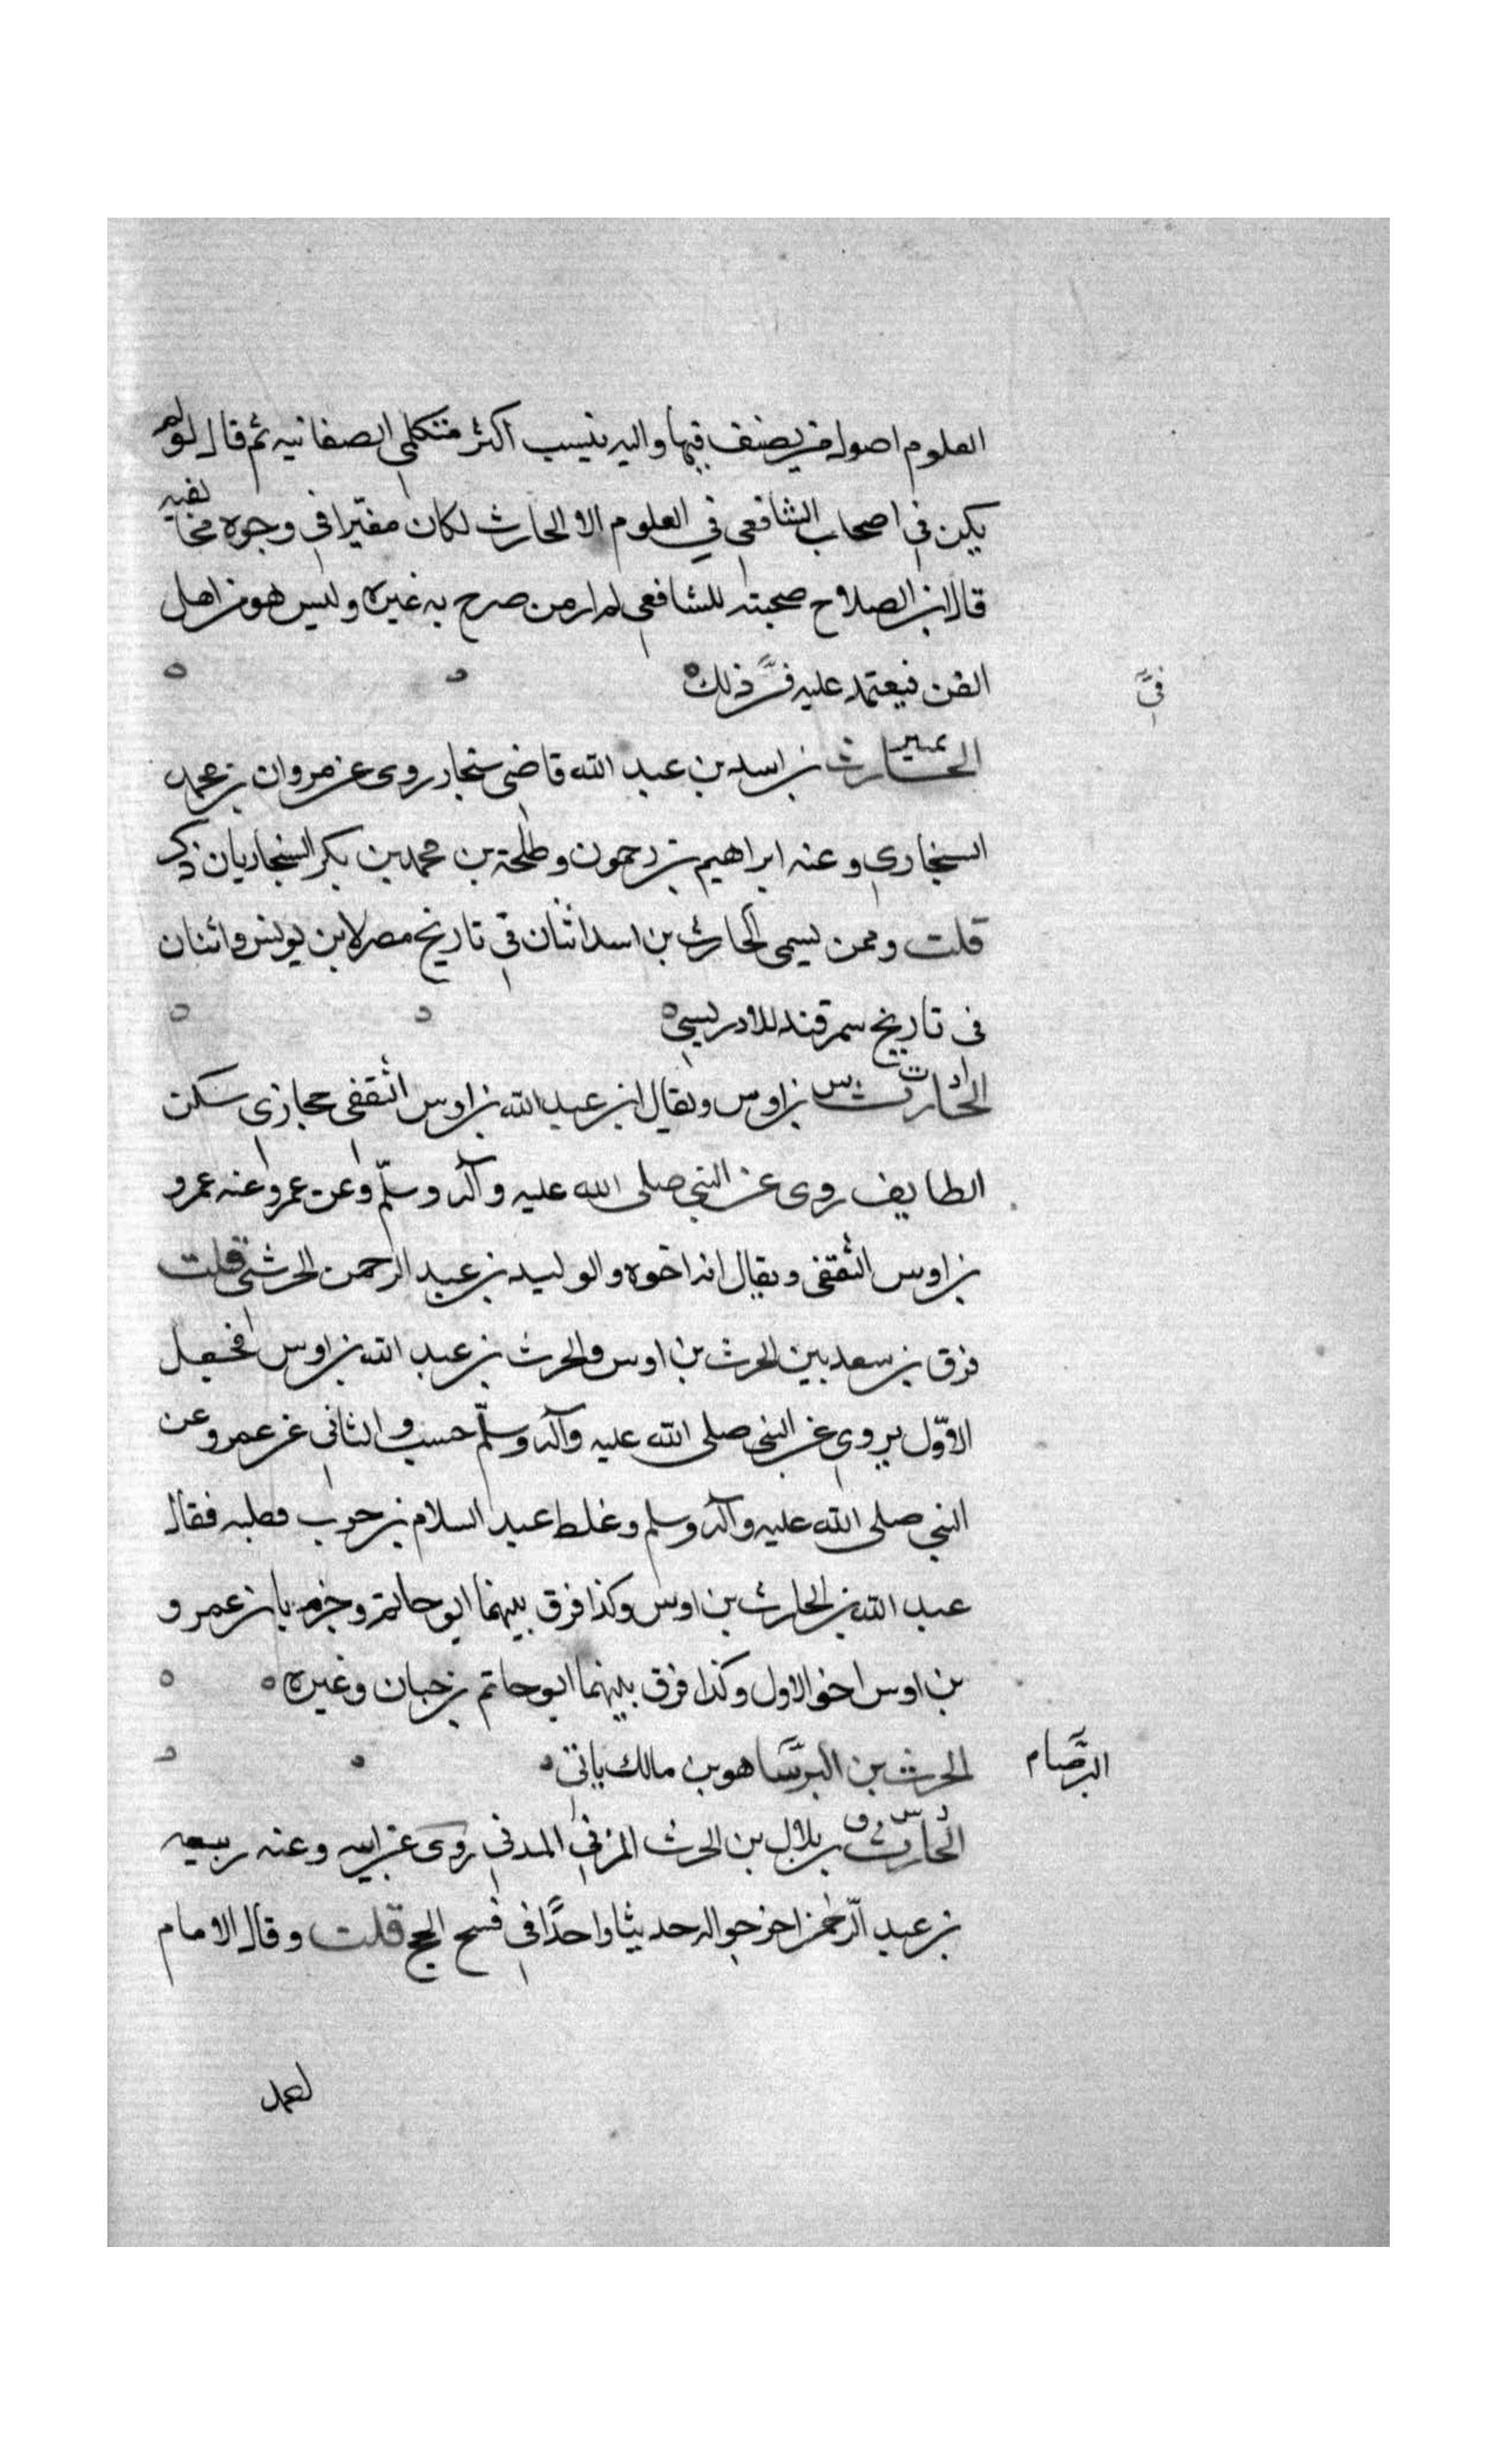 العلوم اصول من يصنف فيها واليه ينسب اكثر متكلمي الصفاتيه ثم قال لو لم
يكن في اصحاب الشافعي في العلوم الا الحارث لكان مغبرا في وجوه مخالفيه
قال ابن الصلاح صحبته للشافعي لم ار من صرح به غيره وليس هو من اهل
الفن فيعتمد عليه في ذلك
في
الحارث تمييز بن اسد بن عبد الله قاضي سنجار روى عن مروان بن محمد
السنجاري وعنه ابراهيم بن رحمون وطلحة بن محمد بن بكر السنجاريان ذكر
قلت وممن يسمى الحارث بن اسد اثنان في تاريخ مصر لابن يونس واثنان
في تاريخ سمرقند للادريسي
الحارث د ت س بن اوس ويقال ابن عبد الله بن اوس الثقفي حجازي سكن
الطايف روى عن النبي صلى الله عليه وآله وسلّم وعن عمر وعنه عمرو
بن اوس الثقفي ويقال انه اخوه والوليد بن عبد الرحمن الحرشي قلت
فرق بن سعد بين الحرث بن اوس والحرث بن عبد الله بن اوس فجعل
الاوّل يروي عن النبي صلى الله عليه وآله وسلّم حسب والثاني عن عمر وعن
النبي صلى الله عليه وآله وسلم وغلط عبد السلام بن حرب فقلبه فقال
عبد الله بن الحارث بن اوس وكذا فرق بينهما ابو حاتم وجزم بان عمرو
بن اوس اخو الاول وكذا فرق بينهما ابو حاتم بن حبان وغيره
الحرث بن البرصا هو بن مالك ياتي
البرصاء
الحارث د س ق بن بلال بن الحرث المزني المدني روى عن ابيه وعنه ربيعه
بن عبد الرحمن اخرجوا له حديثا واحدًا في فسخ الحج قلت وقال الامام
احمد